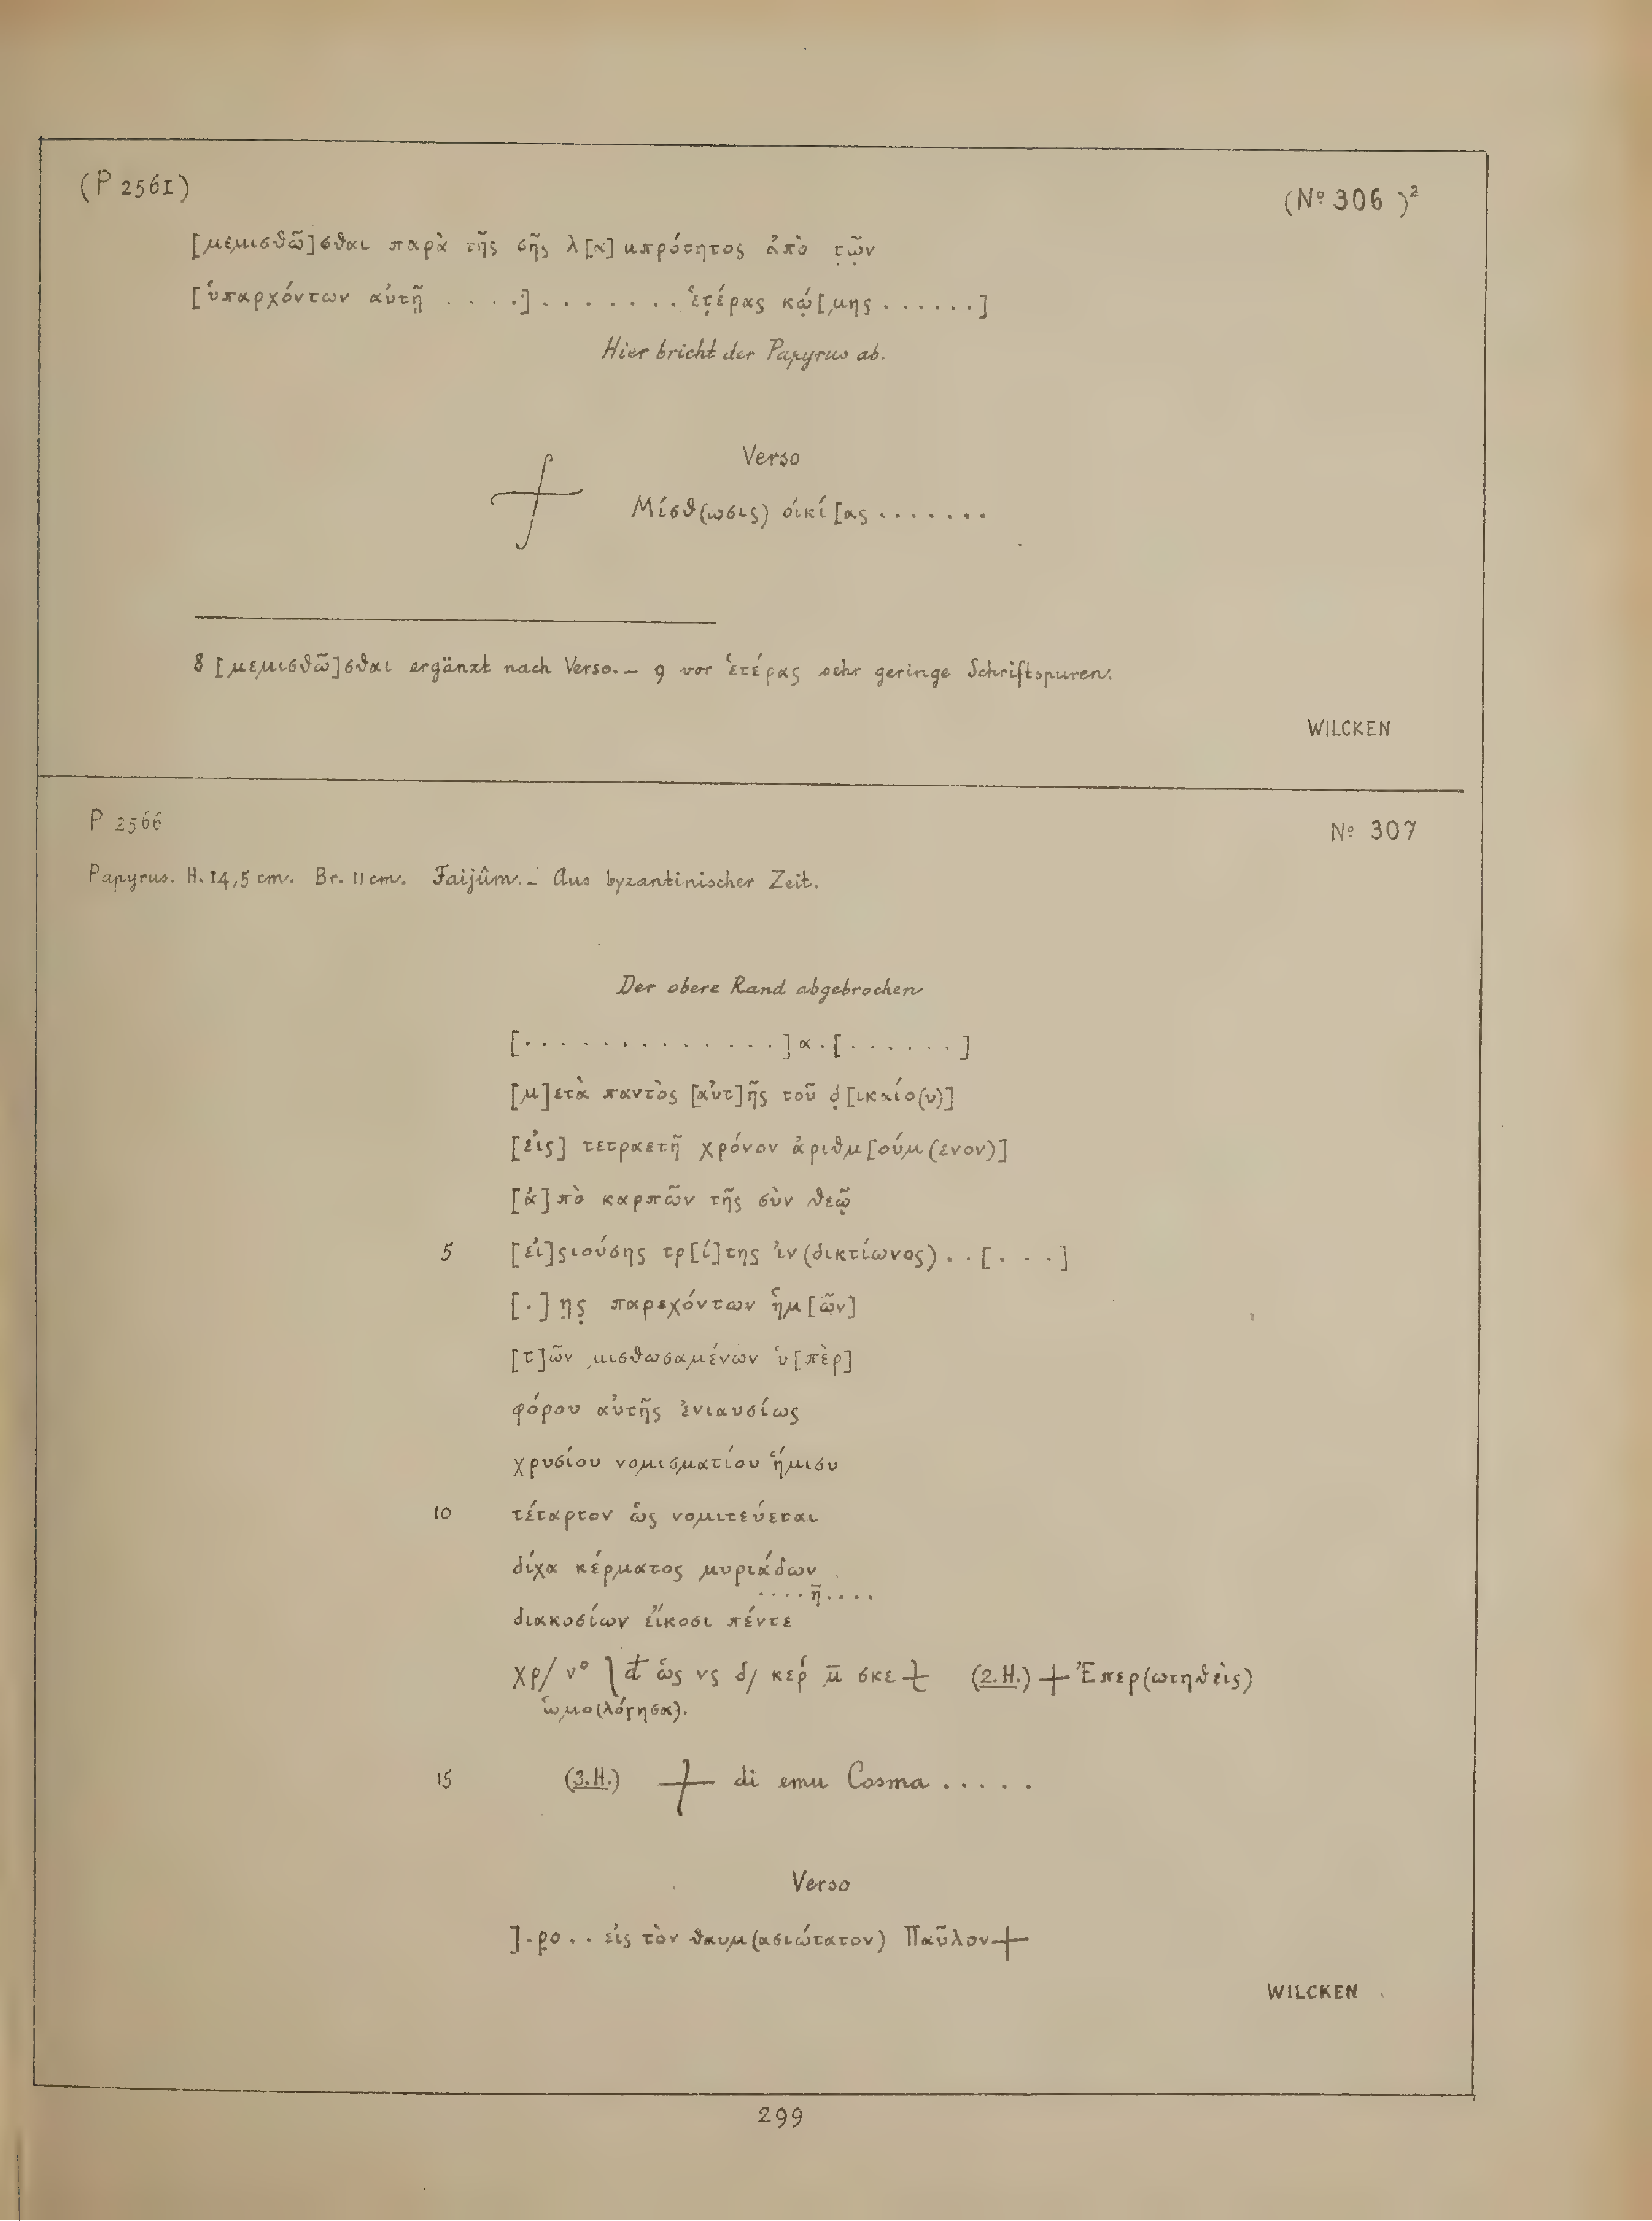 (P 2561)
(Nº 306)²
[μεμισθῶ]σθαι παρὰ τῆς σῆς λ[α]μπρότητος ἀπὸ τ̣ῶ̣ν
[ὑπαρχόντων αὐτῇ . . . .] . . . . . . . ἑτ̣έρας κώ̣[μης . . . . . .]
Hier bricht der Papyrus ab.
Verso
Μίσθ(ωσις) οἰκί[ας . . . . . . .
8 [μεμισθῶ]σθαι ergänzt nach Verso. – 9 vor ἑτέρας sehr geringe Schriftspuren.
WILCKEN
P 2566
Nº 307
Papyrus. H. 14,5 cm. Br. 11 cm. Faijûm. – Aus byzantinischer Zeit.
Der obere Rand abgebrochen
[. . . . . . . . . . . . . .] α . [. . . . . .]
[μ]ετὰ παντὸς [αὐτ]ῆς τοῦ δ̣[ικαίο(υ)]
[εἰς] τετραετῆ χρόνον ἀριθμ[ούμ(ενον)]
[ἀ]πὸ καρπῶν τῆς σὺν θεῷ
5 [εἰ]ςιούσης τρ[ί]της ἰν(δικτίωνος) . . [. . . .]
[.] η̣ς̣ παρεχόντων ἡμ[ῶν]
[τ]ῶν μισθωσαμένων ὑ[πὲρ]
φόρου αὐτῆς ἐνιαυσίως
χρυσίου νομισματίου ἥμισυ
10 τέταρτον ὡς νομιτεύεται
δίχα κέρματος μυριάδων
. . . . η̄ . . . .
διακοσίων εἴκοσι πέντε
χρ/ νº ⎱ đ ὡς νς δ/ κερ μ̄ σκε + (2.H.) + Ἐπερ(ωτηθεὶς)
ὡμο(λόγησα).
15 (3.H.) + di emu Cosma . . . . .
Verso
] . ρ̣ο . . εἰς τὸν θαυμ(ασιώτατον) Παῦλον +
WILCKEN
299